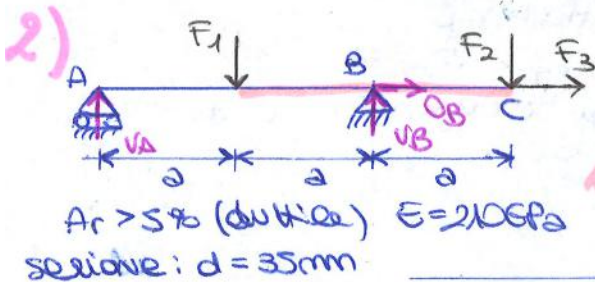 2)
F1 F2 F3
A B OB C
VA VB
a a a
Ar > 5% (duttile) E = 210GPa
sezione: d = 35mm